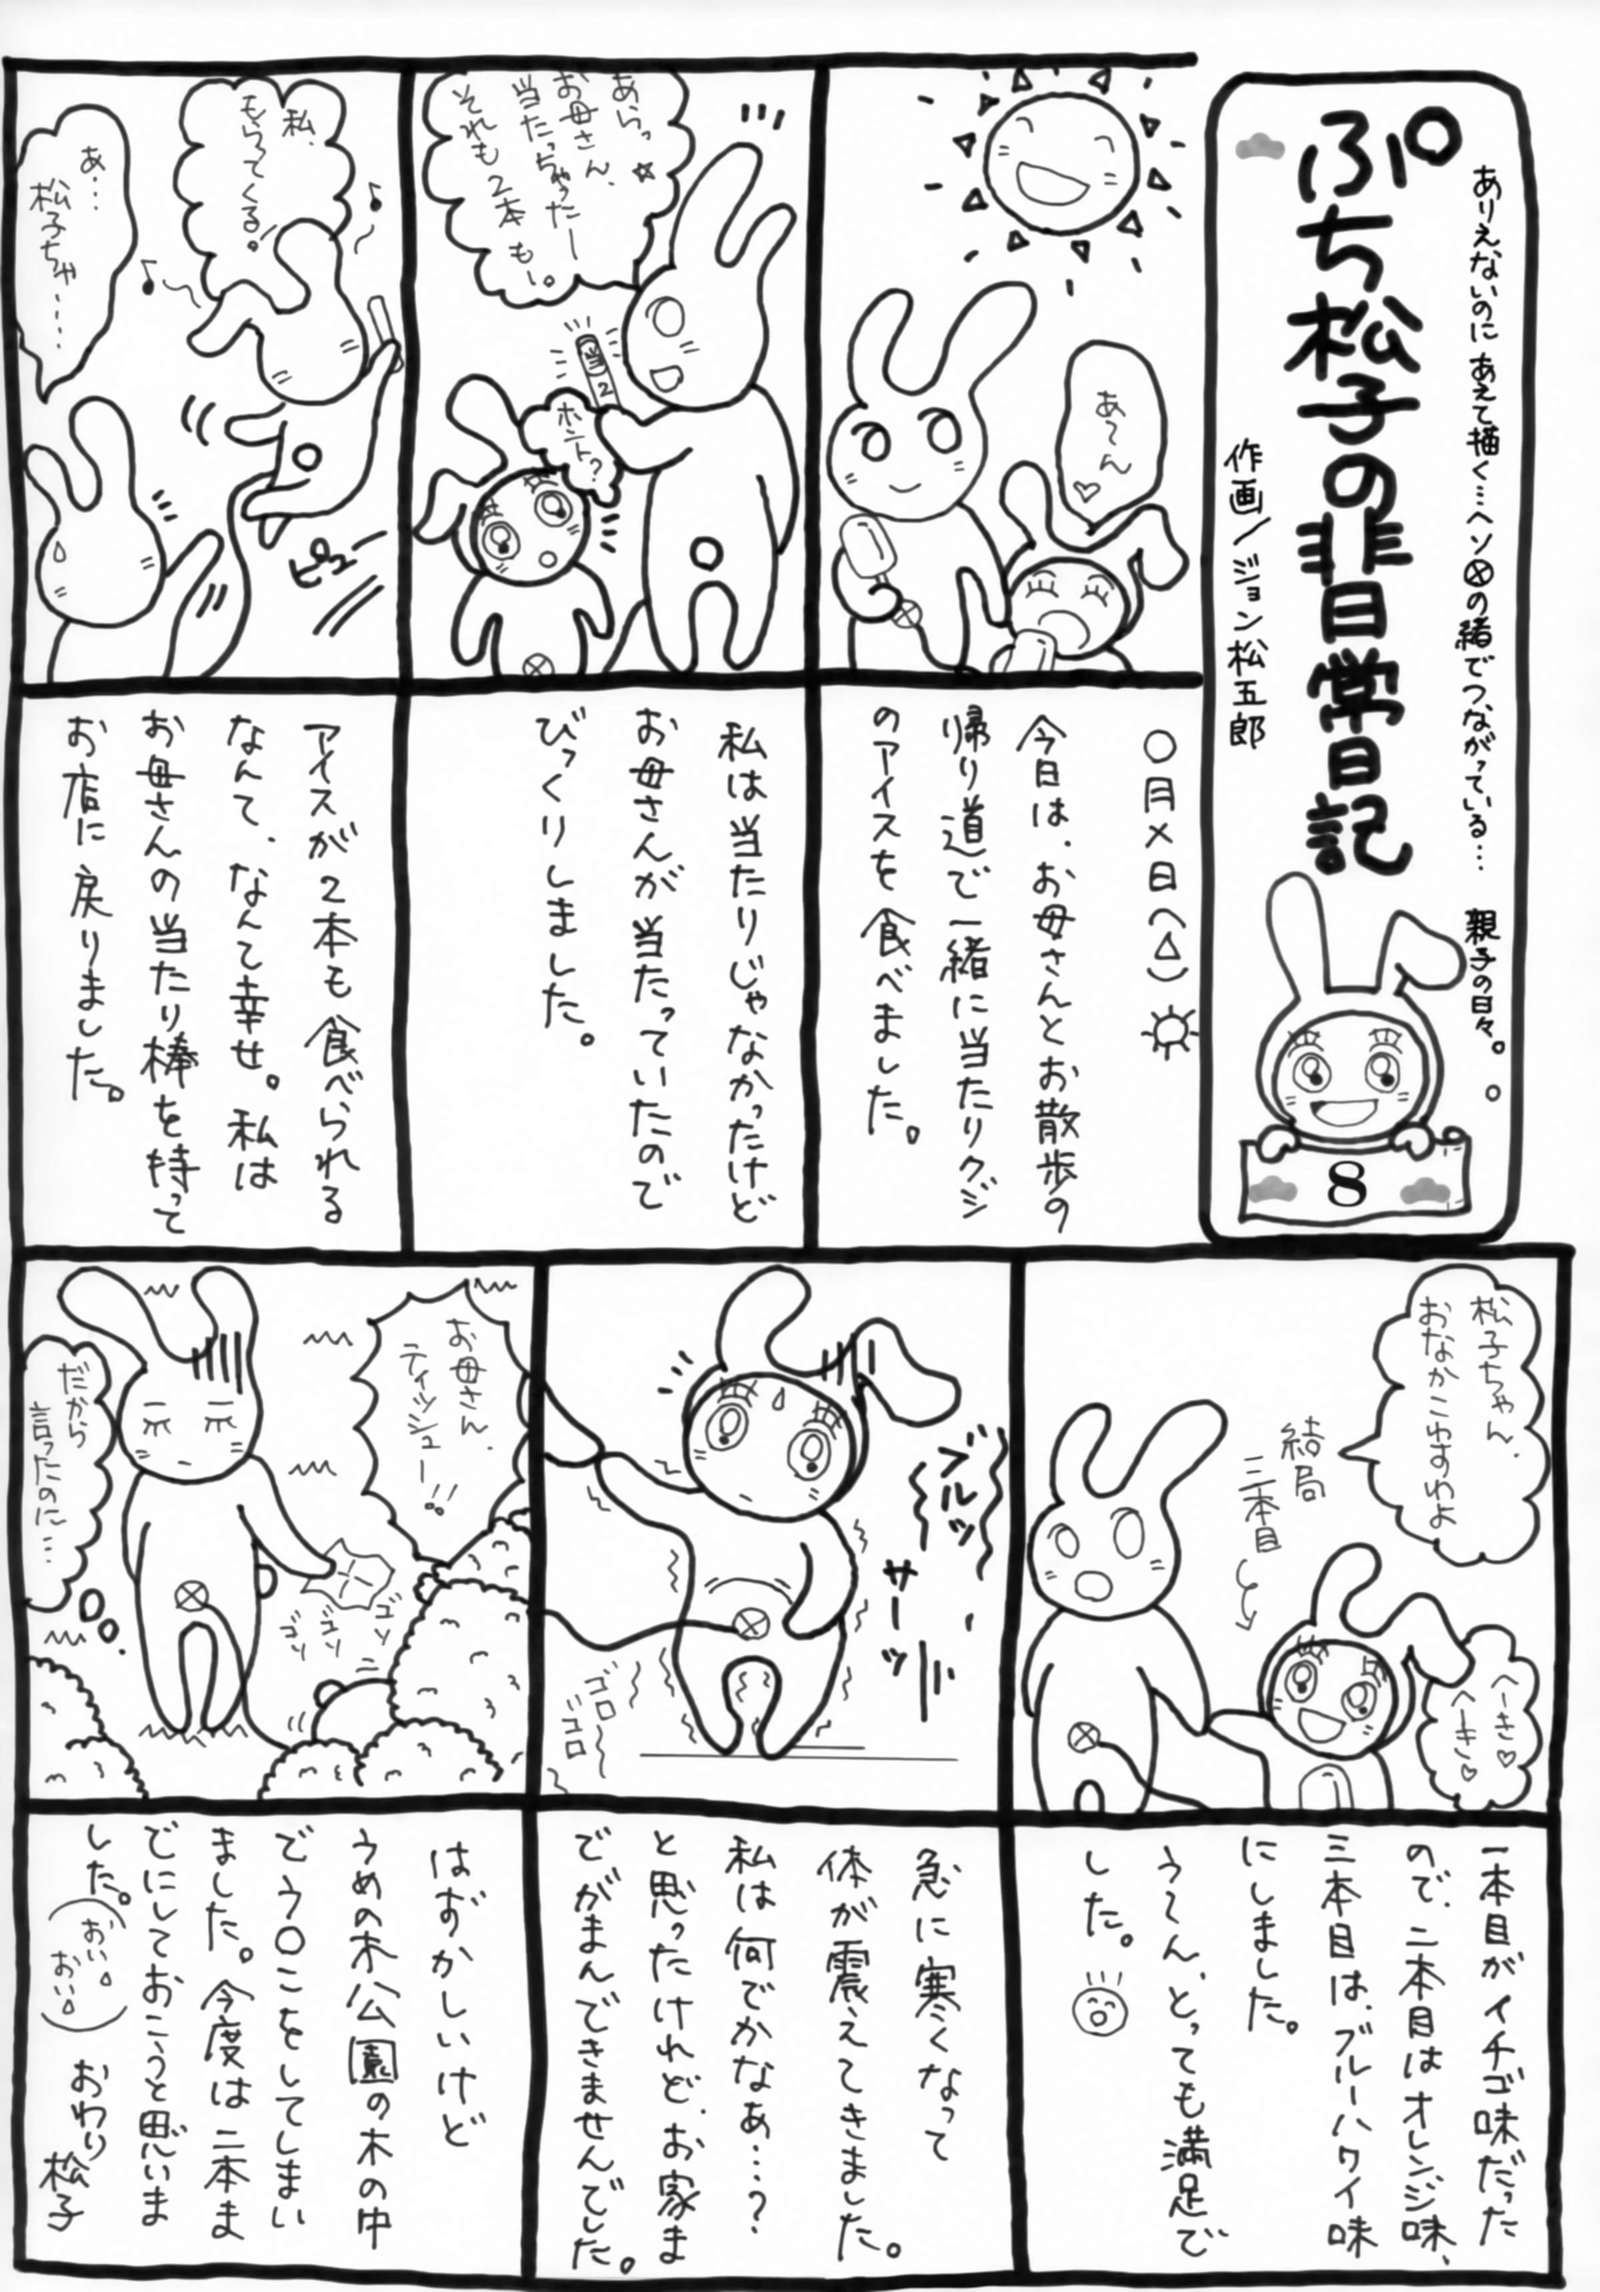 ありえないのに あえて描く…ヘソⓧの緒でつながっている… 親子の日々。。
ぷち松子の非日常日記
作画／ジョン松五郎
8
あ〜ん♡
〇月×日(△)☼
今日は、お母さんとお散歩の
帰り道で一緒に当たりクジ
のアイスを食べました。
あらっ☆
お母さん、
当たっちゃったー
それも2本も。
当2
ホント？
私は当たりじゃなかったけど
お母さんが当たっていたので
びっくりしました。
私、
もらってくる。♪
ピュー
あ…
松子ちゃ……
アイスが2本も食べられる
なんて、なんて幸せ。私は
お母さんの当たり棒を持って
お店に戻りました。
松子ちゃん、
おなかこわすわよ
結局
三本目
へーき♡
へーき♡
一本目がイチゴ味だった
ので、二本目はオレンジ味、
三本目は、ブルーハワイ味
にしました。
う〜ん、とっても満足で
した。
ブルッ
サーッ
ゴロ
ゴロ
急に寒くなって
体が震えてきました。
私は何でかなぁ…？
と思ったけれど、お家ま
でがまんできませんでした。
お母さん、
ティッシュー!!
ゴソ
ゴソ
ゴソ
だから
言ったのに…
はずかしいけど
うめの木公園の木の中
でウ〇こをしてしまい
ました。今度は二本ま
でにしておこうと思いま
した。
（おい、おい）
おわり
松子